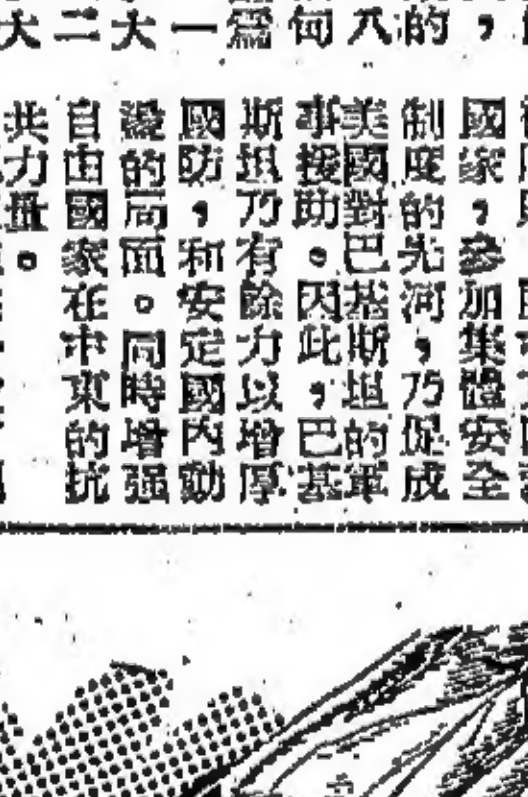 的，
八
句
篇
一
大
二
大
國家，參加集體安全
制度的先河，乃促成
美國對巴基斯坦的軍
事援助。因此，巴基
斯坦乃有餘力以增厚
國防，和安定國內動
盪的局面。同時增强
自由國家在中東的抗
共力量。